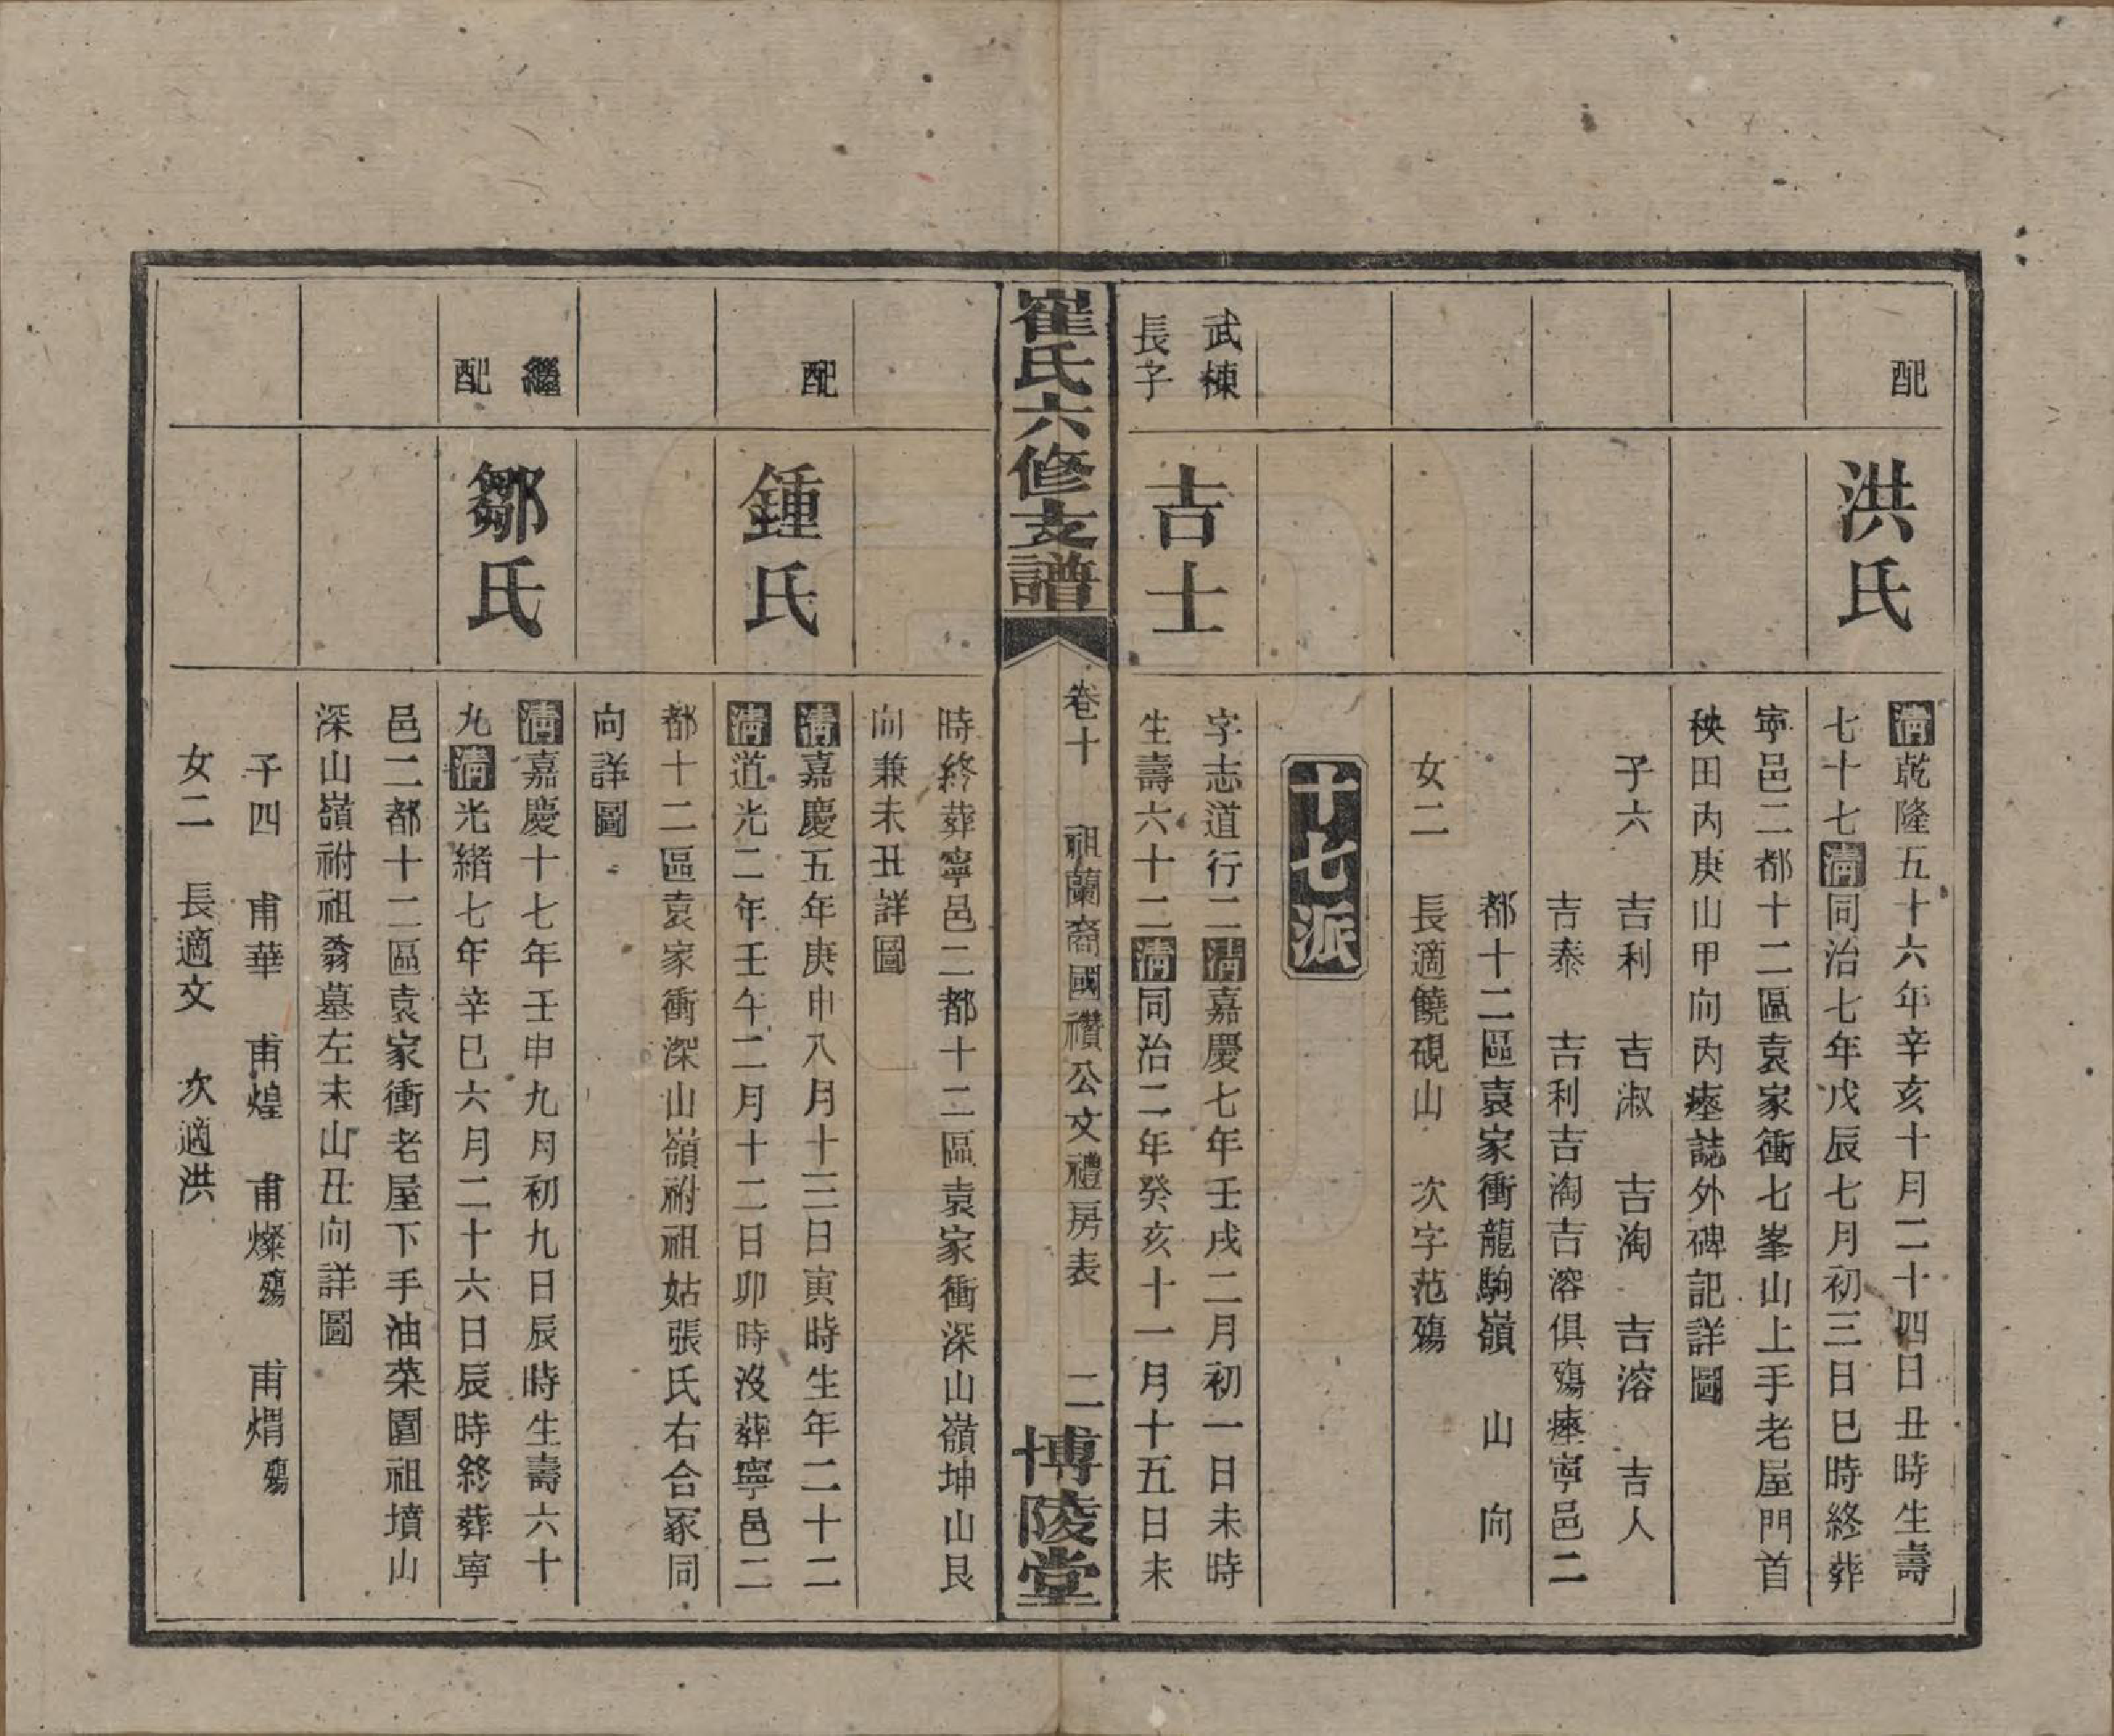 配
洪氏
清乾隆五十六年辛亥十月二十四日丑時生壽
七十七清同治七年戊辰七月初三日巳時終葬
寧邑二都十二區袁家衝七峯山上手老屋門首
秧田內庚山甲向內瘞誌外碑記詳圖
子六 吉利 吉淑 吉淘 吉溶 吉人
吉泰 吉利吉淘吉溶俱殤瘞寧邑二
都十二區袁家衝龍駒嶺 山 向
女二 長適饒硯山 次字范殤
十七派
武棟
長子
吉士
字志道行二清嘉慶七年壬戌二月初一日未時
生壽六十二清同治二年癸亥十一月十五日未
崔氏六修支譜
卷十 祖蘭裔國禶公文禮房表 二
博陵堂
時終葬寧邑二都十二區袁家衝深山嶺坤山艮
向兼未丑詳圖
配
鍾氏
清嘉慶五年庚申八月十三日寅時生年二十二
清道光二年壬午二月十二日卯時沒葬寧邑二
都十二區袁家衝深山嶺祔祖姑張氏右合冢同
向詳圖
繼
配
鄒氏
清嘉慶十七年壬申九月初九日辰時生壽六十
九清光緒七年辛巳六月二十六日辰時終葬寧
邑二都十二區袁家衝老屋下手油菜園祖墳山
深山嶺祔祖翁墓左未山丑向詳圖
子四 甫華 甫煌 甫燦殤 甫焆殤
女二 長適文 次適洪